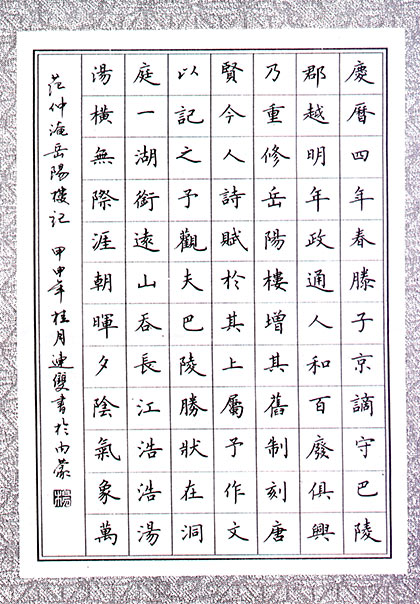 慶曆四年春滕子京謫守巴陵
郡越明年政通人和百廢俱興
乃重修岳陽樓增其舊制刻唐
賢今人詩賦於其上屬予作文
以記之予觀夫巴陵勝狀在洞
庭一湖銜遠山吞長江浩浩湯
湯橫無際涯朝暉夕陰氣象萬
范仲淹岳陽樓記 甲申年桂月連雙書於內蒙